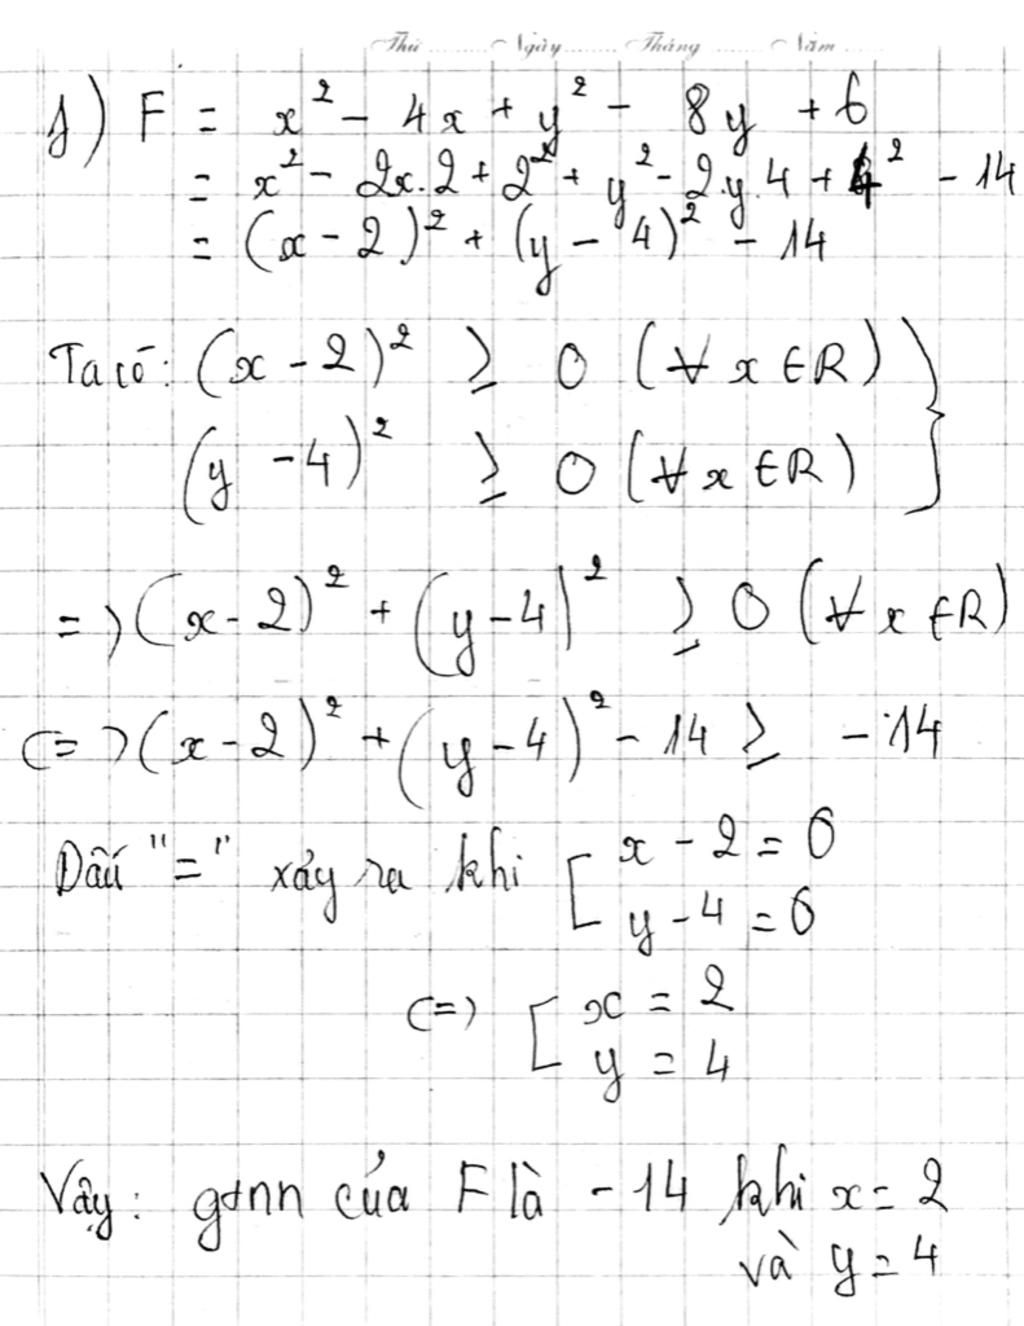 Thứ ........ Ngày ........ Tháng ........ Năm ........
f) F = x² - 4x + y² - 8y + 6
= x² - 2x.2 + 2² + y² - 2.y.4 + 4² - 14
= (x - 2)² + (y - 4)² - 14
Ta có: (x - 2)² ≥ 0 (∀ x ∈ R) }
(y - 4)² ≥ 0 (∀ x ∈ R)
=> (x - 2)² + (y - 4)² ≥ 0 (∀ x ∈ R)
<=> (x - 2)² + (y - 4)² - 14 ≥ -14
Dấu "=" xảy ra khi [ x - 2 = 0
y - 4 = 0
<=> [ x = 2
y = 4
Vậy: gtnn của F là -14 khi x = 2
và y = 4